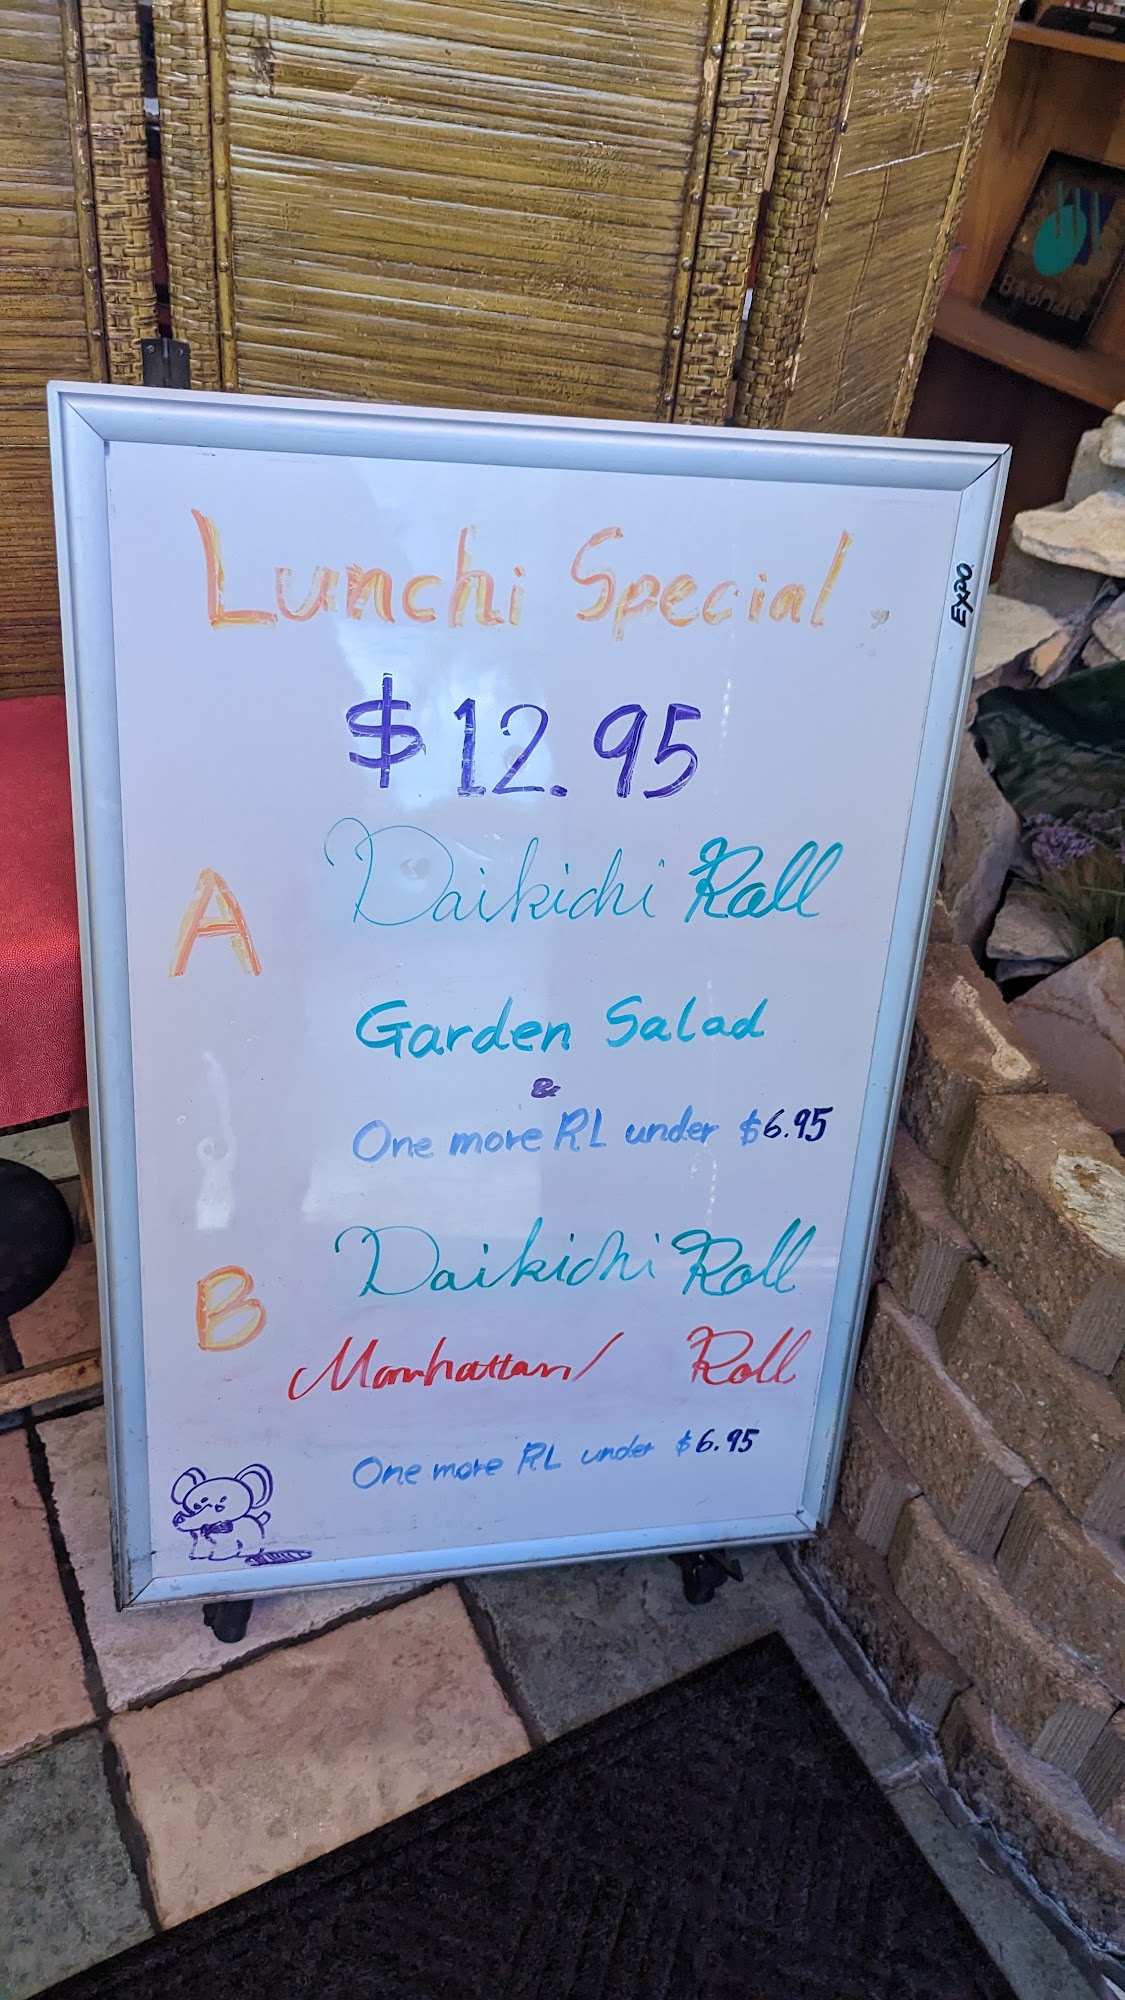 Lunchi Special.
$12.95
A Daikichi Roll
Garden Salad
&
One more RL under $6.95
B Daikichi Roll
Manhattan Roll
One more RL under $6.95
EXPO